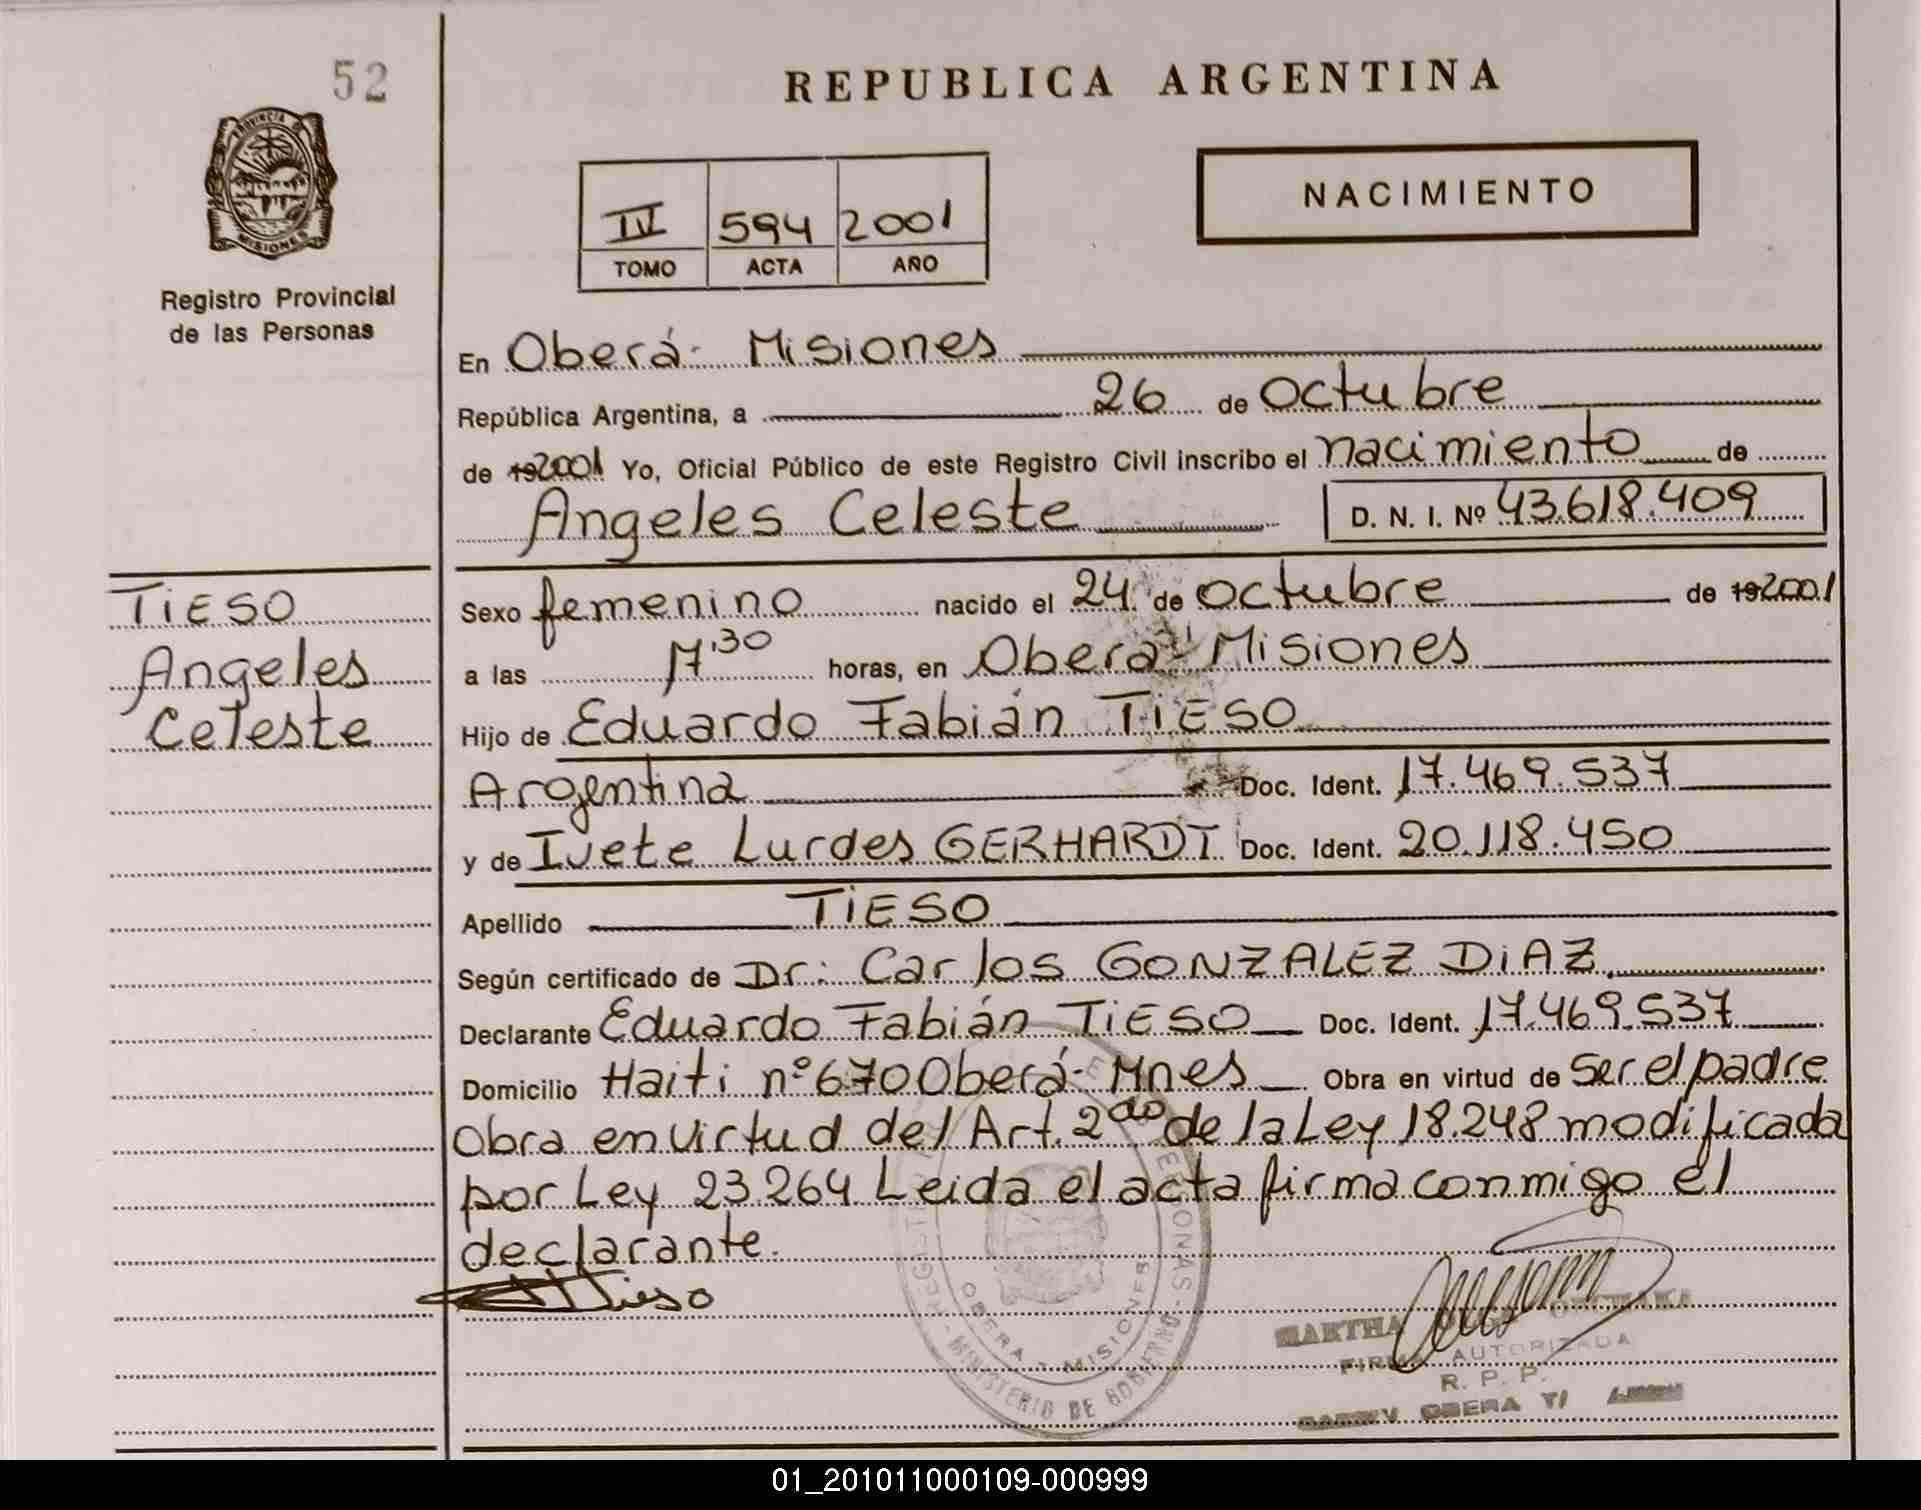 52
REPUBLICA ARGENTINA
PROVINCIA D
MISIONES
Registro Provincial
de las Personas
NACIMIENTO
IV 594 2001
TOMO ACTA AÑO
En Oberá - Misiones
República Argentina, a 26 de octubre
de 19 2001 Yo, Oficial Público de este Registro Civil inscribo el nacimiento de
Angeles Celeste D. N. I. Nº 43.618.409
TiESO
Angeles
Celeste
Sexo femenino nacido el 24 de octubre de 19 2001
a las 17,30 horas, en Oberá - Misiones
Hijo de Eduardo Fabián TiESO
Argentina Doc. Ident. 17.469.537
y de Ivete Lurdes GERHARDT Doc. Ident. 20.118.450
Apellido TiESO
Según certificado de Dr: Carlos GONZALEZ DiAZ
Declarante Eduardo Fabián TiESO Doc. Ident. 17.469.537
Domicilio Haiti nº 670 Oberá - Mnes Obra en virtud de Ser el padre
Obra en virtud del Art. 2do de la Ley 18.248 modificada
por Ley 23.264 Leida el acta firma conmigo el
declarante.
Tieso
MINISTERIO DE GOBIERNO
OBERA - MISIONES
MARTHA
FIRMA AUTORIZADA
R. P. P.
OBERA
01_201011000109-000999